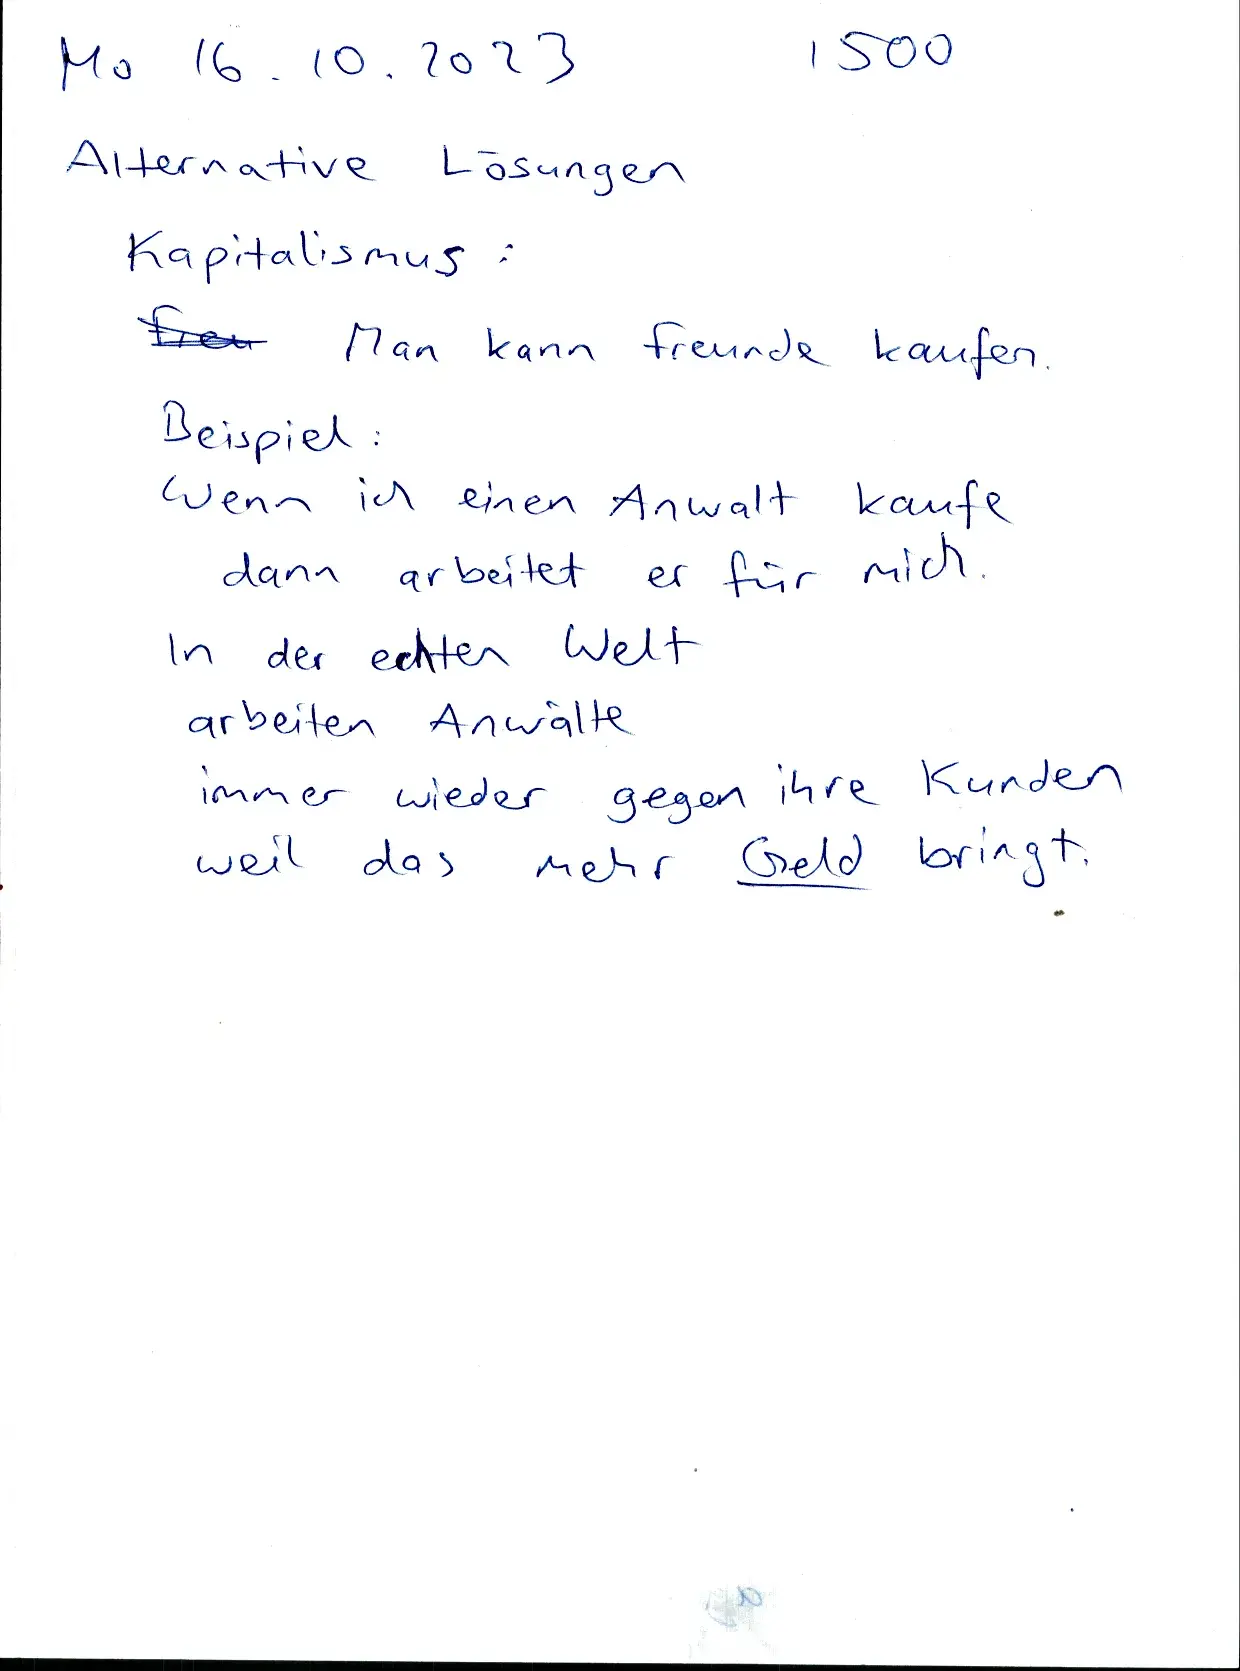 Mo 16.10.2023 1500
Alternative Lösungen
Kapitalismus:
freu Man kann freunde kaufen.
Beispiel:
Wenn ich einen Anwalt kaufe
dann arbeitet er für mich.
In der echten Welt
arbeiten Anwälte
immer wieder gegen ihre Kunden
weil das mehr Geld bringt.